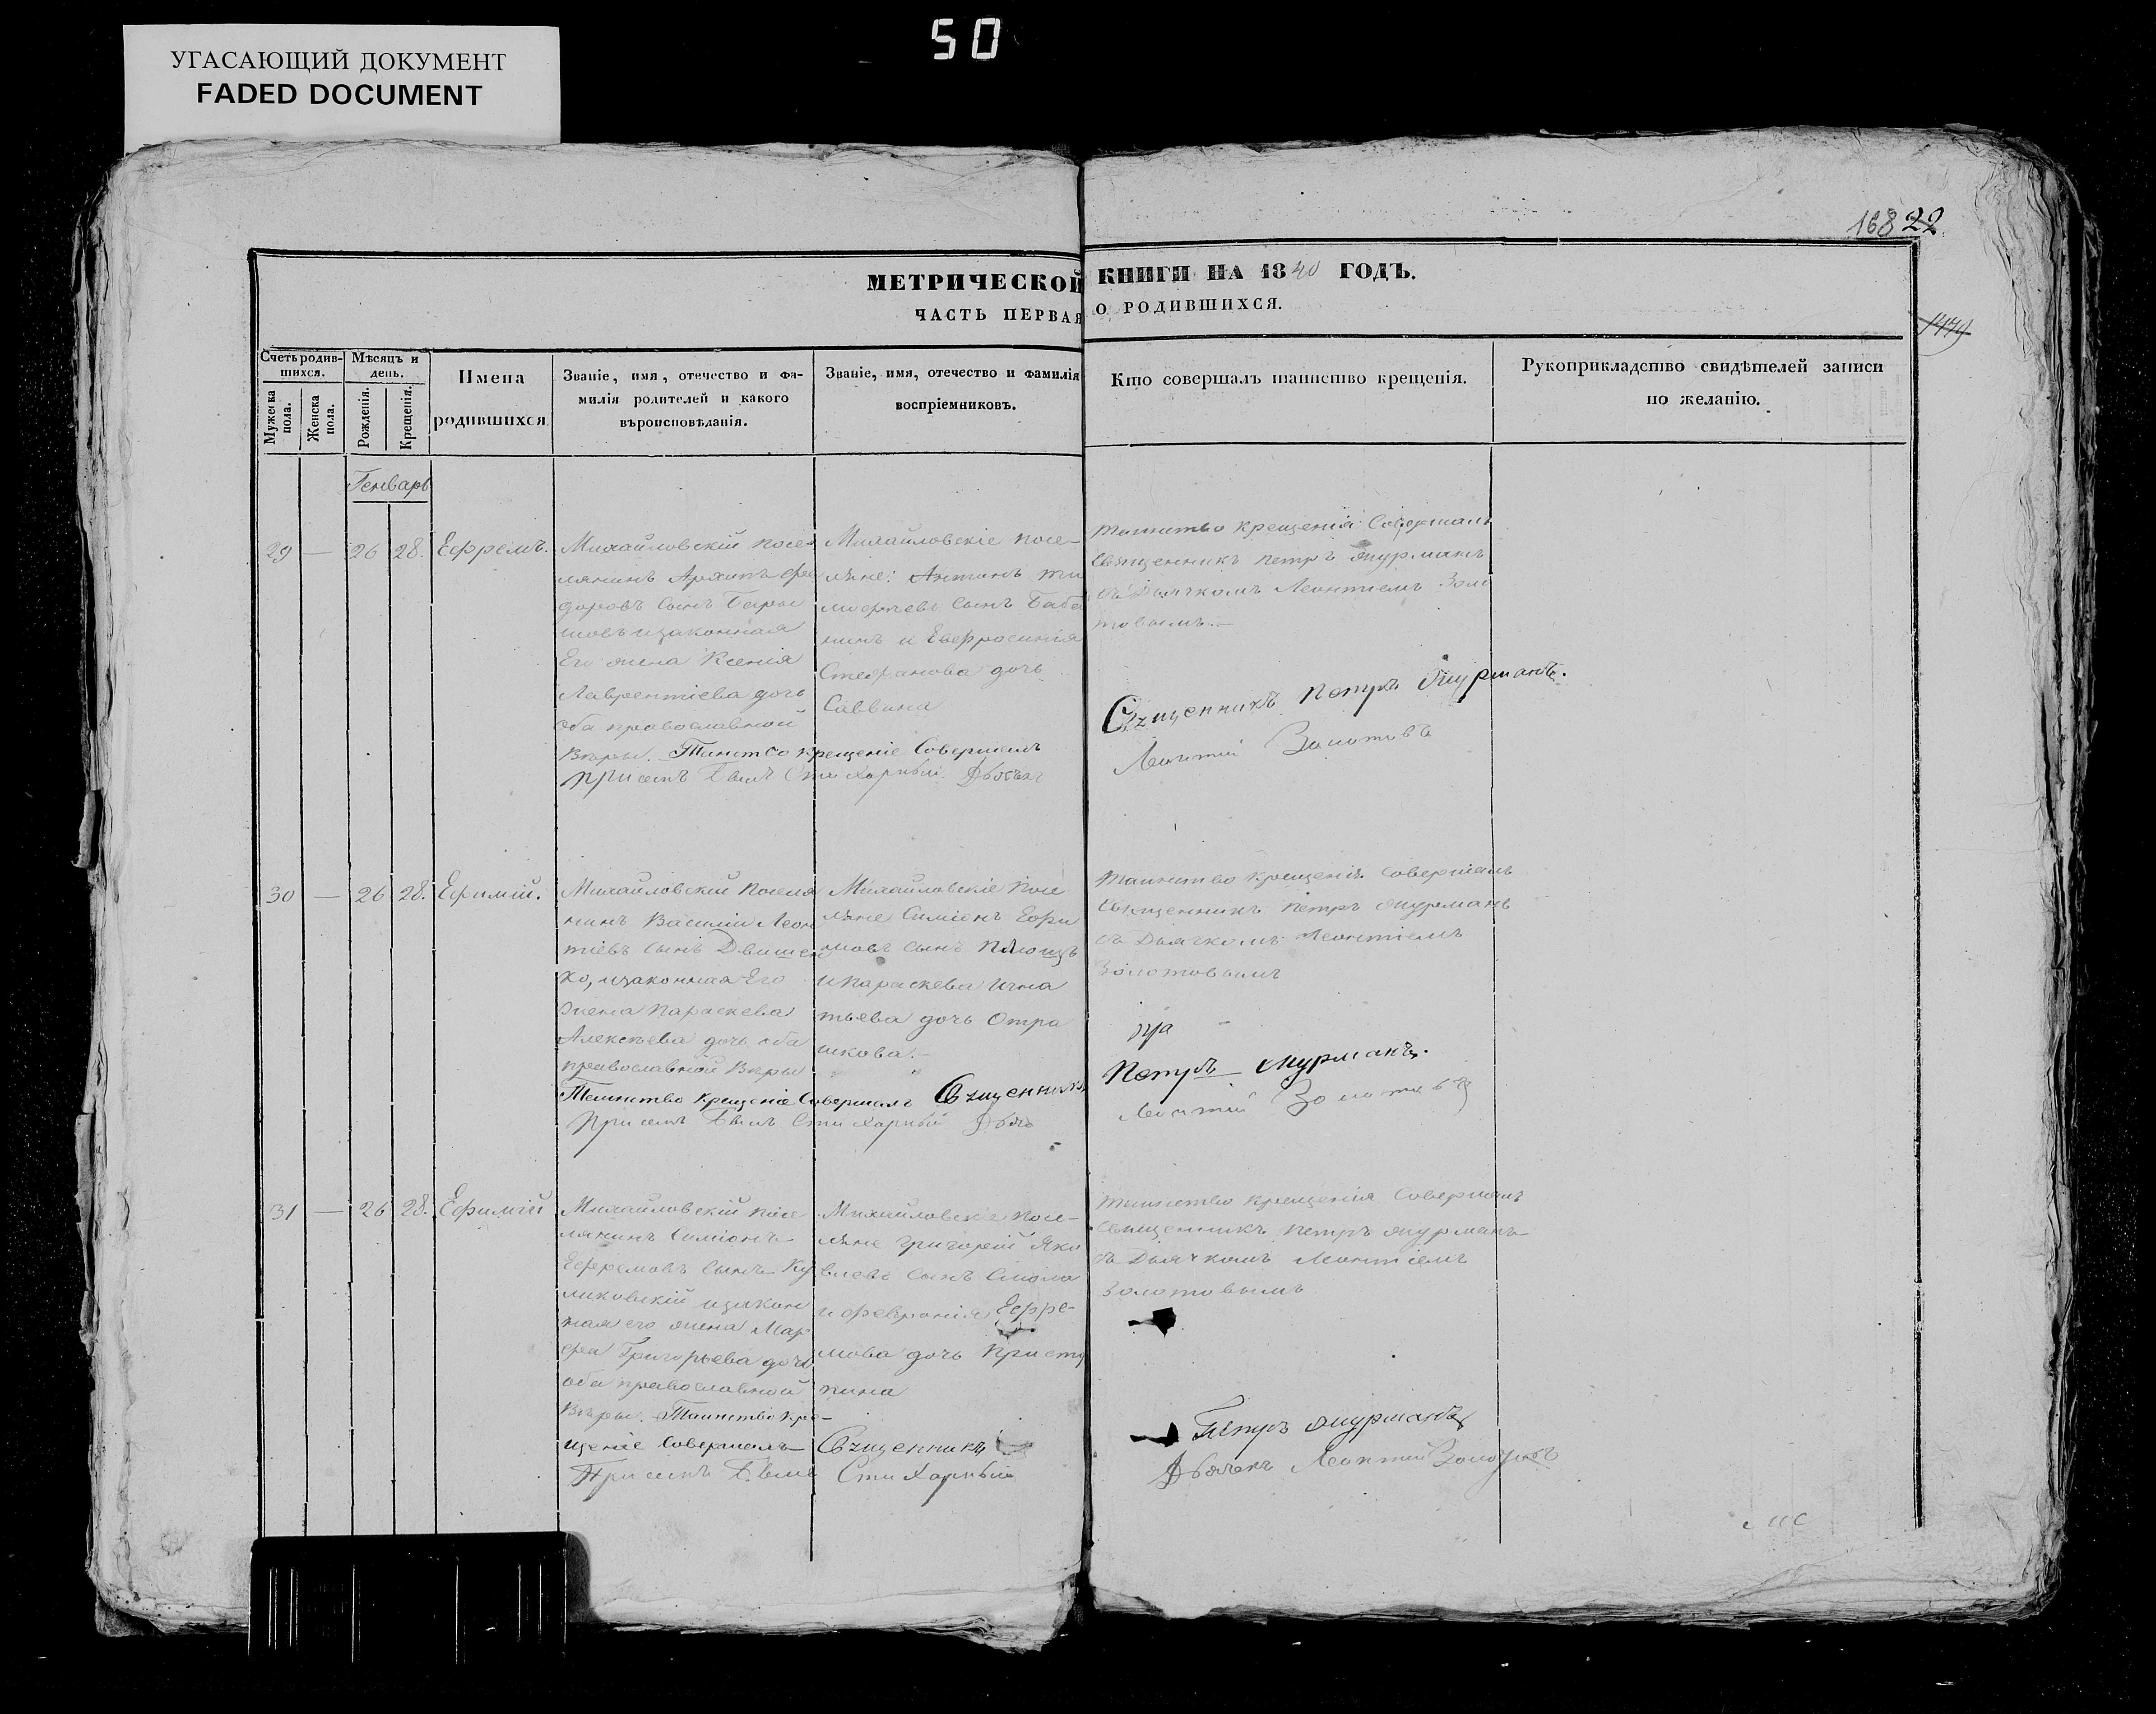 50
УГАСАЮЩИЙ ДОКУМЕНТ
FADED DOCUMENT
168 22
МЕТРИЧЕСКОЙ КНИГИ НА 1840 ГОДЪ.
ЧАСТЬ ПЕРВАЯ О РОДИВШИХСЯ.
Счетъ родив-
шихся.
Мужеска
пола.
Женска
пола.
Мѣсяцъ и
день.
Рожденія.
Крещенія.
Имена
родившихся
Званіе, имя, отечество и фа-
милія родителей и какого
вѣроисповѣданія.
Званіе, имя, отечество и фамилія
воспріемниковъ.
Кто совершалъ таинство крещенія.
Рукоприкладство свидѣтелей записи
по желанію.
Генварь
29 — 26 28. Ефремъ.
Михайловскій посе
лянинъ Архипъ Фе
доровъ сынъ
изаконная
Его жена Ксенія
Лаврентіева дочь
оба православной
Вѣры. Таинство крещеніе Совершалъ
при семъ былъ Стихарный Дьячекъ
Михайловскіе посе-
ляне: Антонъ Ти
мофѣевъ сынъ Баба
нинъ и Евфросинія
Стефанова дочь
Саввина
таинство крещенія Совершалъ
священникъ Петръ Журманъ
съ Дьячкомъ Леонтіемъ Золо
товымъ.—
Священникъ Петръ Журманъ.
Леонтій Золотовъ
30 — 26 28. Ефимій.
Михайловскій поселя
нинъ Василій Леон
тіевъ сынъ Двишен
ко, изаконная Его
жена Параскева
Алексѣева дочь оба
православной Вѣры
Таинство крещеніе Совершалъ Священникъ
При семъ былъ Стихарный Дьяч
Михайловскіе посе
ляне Симіенъ Ефи
мовъ сынъ
и Параскева Игна
тьева дочь Отра
шкова.—
таинство крещенія совершалъ
священникъ Петръ Журманъ
съ Дьячкомъ Леонтіемъ
Золотовымъ
Петръ Журманъ.
Леонтій Золотовъ
31 — 26 28. Ефимій
Михайловскій посе
лянинъ Симіонъ
Ефремовъ сынъ Ку
ликовскій изакон
ная его жена Мар
фа Григорьева дочь
оба православной
Вѣры. Таинство кре-
щеніе совершалъ Священникъ
При семъ былъ Стихарный
Михайловскіе посе-
ляне Григорій Яко
влевъ сынъ Смола
и Февронія Ефре-
мова дочь Присту
пина
таинство крещенія Совершалъ
священникъ Петръ Журманъ
съ Дьячкомъ Леонтіемъ
Золотовымъ
Петръ Журманъ
Дьячекъ Леонтій Золотовъ